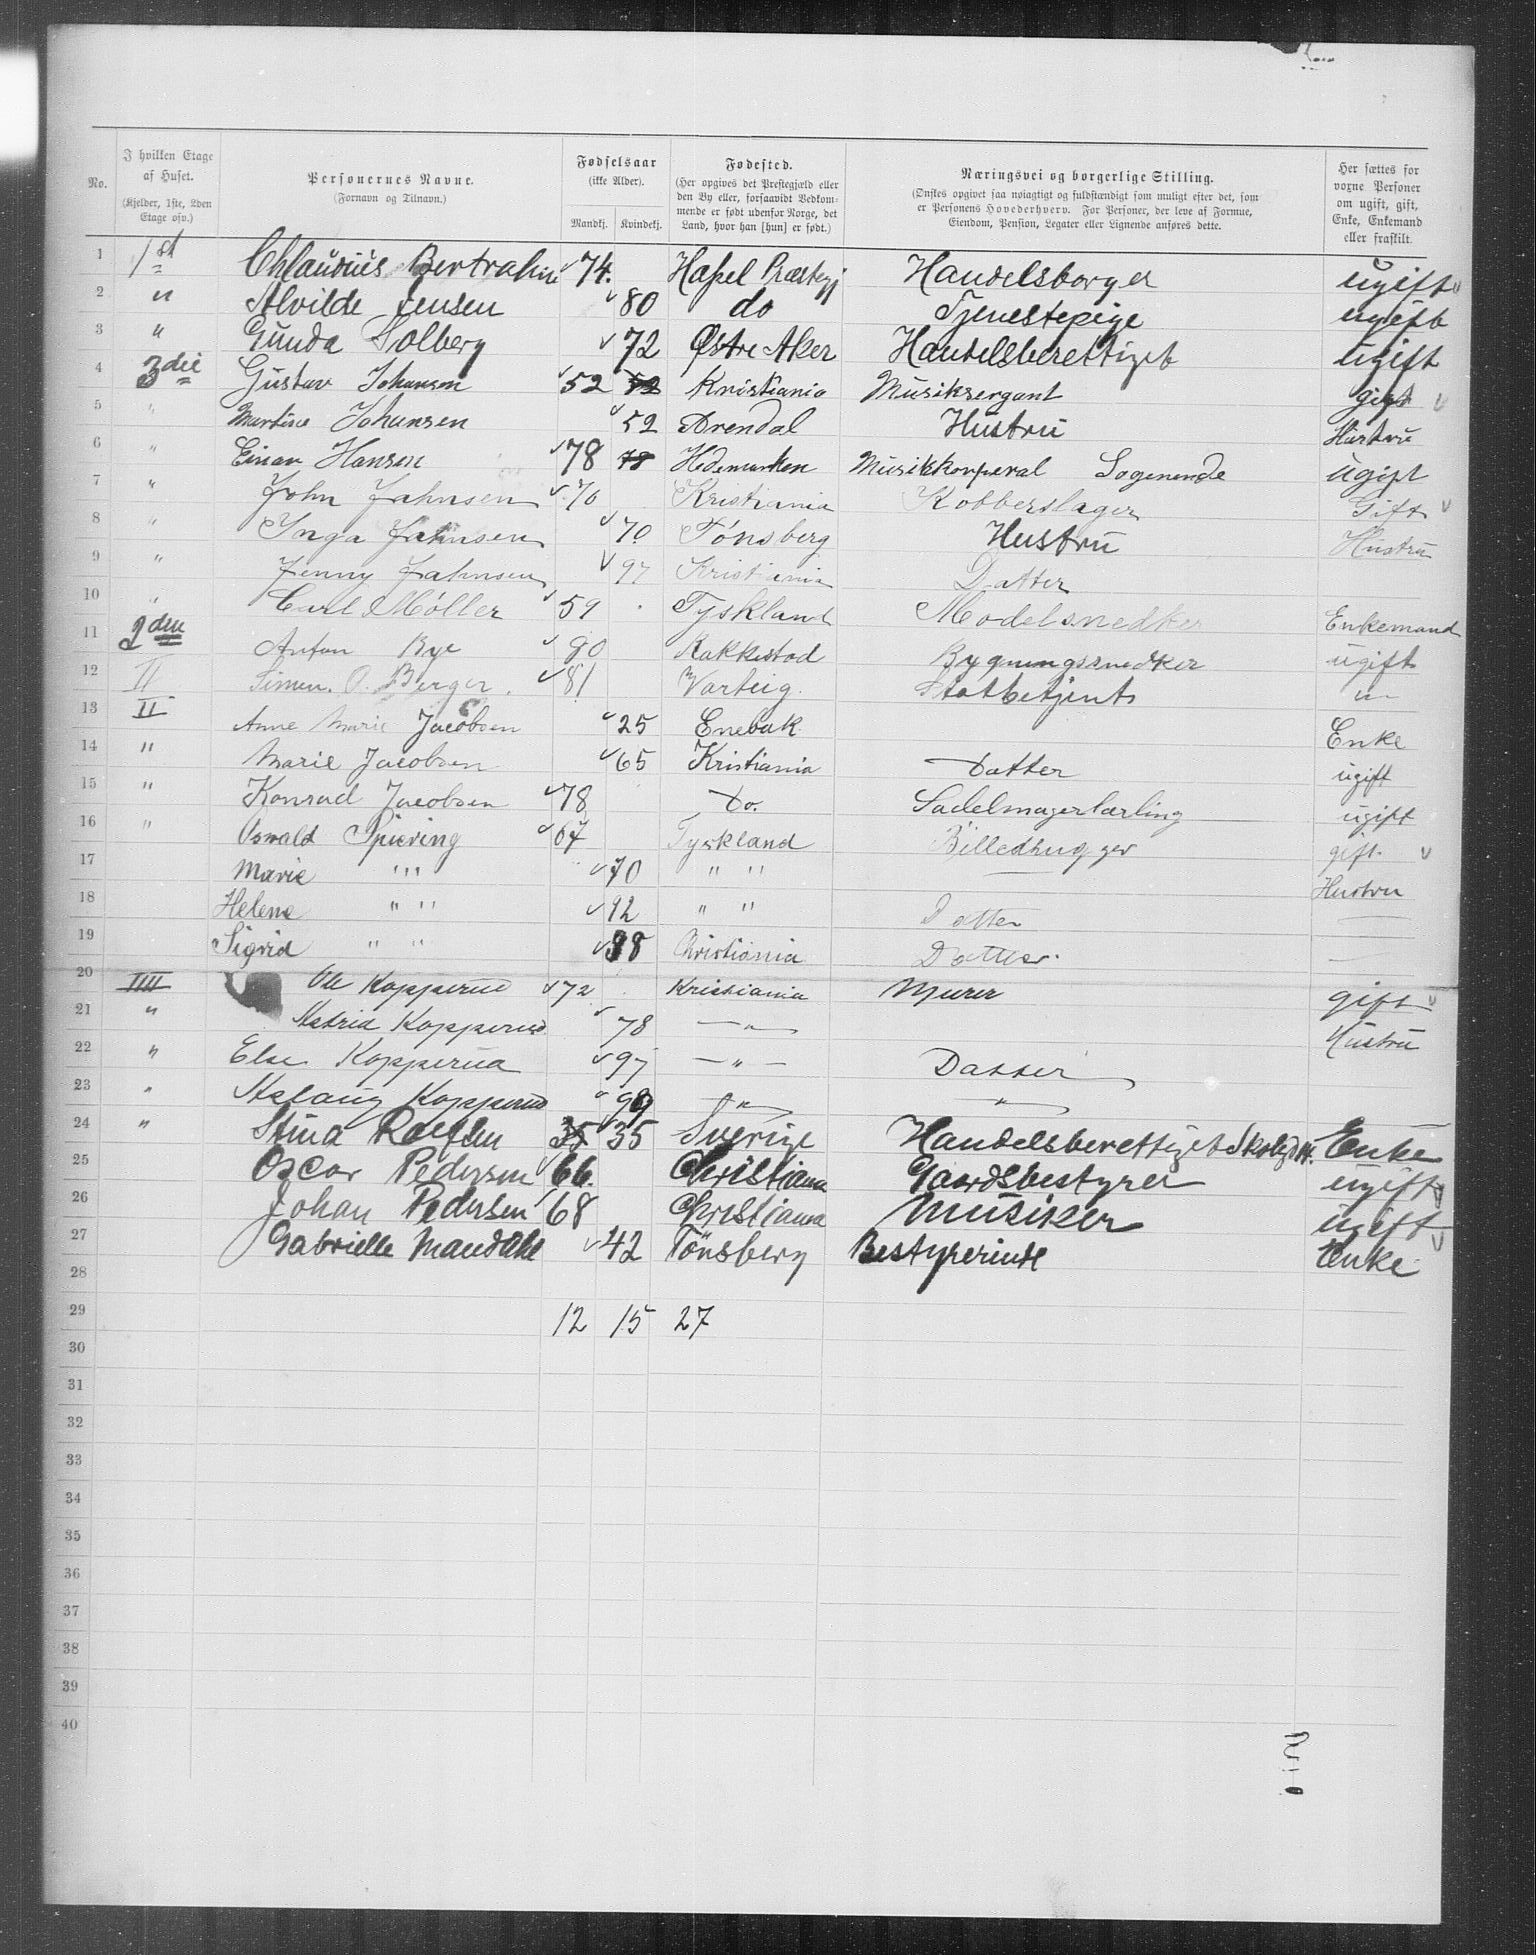 No.
I hvilken Etage af Huset. (Kjelder, 1ste, 2den Etage osv.)
Personernes Navne. (Fornavn og Tilnavn.)
Fødselsaar (ikke Alder). Mandkj. Kvindekj.
Fødested. (Her opgives det Prestegjæld eller den By eller, forsaavidt Vedkommende er født udenfor Norge, det Land, hvor han [hun] er født.)
Næringsvei og borgerlige Stilling. (Ønskes opgivet saa nøiagtigt og fuldstændigt som muligt efter det, som er Personens Hovederhverv. For Personer, der leve af Formue, Eiendom, Pension, Legater eller Lignende anføres dette.
Her sættes for voxne Personer om ugift, gift, Enke, Enkemand eller fraskilt.
1 1st Chlaudius Bertrahm 74. Handelsborger ugift
2 " Alvilde Jensen 80 do Tjenestepige ugift
3 " Gunda Solberg 72 Østre Aker Handelsberettiget ugift
4 3die Gustav Johansen 52 52 Kristiania Musiksergant gift
5 " Johansen 52 Arendal Hustru Hustru
6 " Einar Hansen 78 78 Hedemarken Musikkorperal Logerende ugift
7 " John Jahnsen 70 Kristiania Kobberslager Gift
8 " Inga Jahnsen 70 Tønsberg Hustru Hustru
9 " Jenny Jahnsen 97 Kristiania Datter
10 " Carl Møller 59 Tyskland Modelsnedker Enkemand
11 2den Anton Bye 80 Rakkestad Bygningssnedker ugift
12 II Simen. O. Berger. 81 Varteig. Statbetjent "
13 II Anne Marie Jacobsen 25 Enebak Enke
14 " Marie Jacobsen 65 Kristiania Datter ugift
15 " Konrad Jacobsen 78 Do. Sadelmagerlærling ugift
16 " Oswald Spiering 67 Tyskland Billedhugger gift
17 Marie " " 70 " " Hustru
18 Helene " " 92 " " Datter
19 Sigrid " " 98 Christiania Datter
20 IIII Ole Kopperud 72 Kristiania Murer gift
21 " Astrid Kopperud 78 — " — Hustru
22 " Else Kopperud 97 — " — Datter
23 " Aslaug Kopperud 99 — " — "
24 " Stina 35 35 Sverige Handelsberettiget Enke
25 Oscar Pedersen 66. Christiania Gaardsbestyrer ugift
26 Johan Pedersen 68 Christiania Musiker ugift
27 Gabrielle Mandahl 42 Tönsberg Bestyrerinde Enke
28
29 12 15 27
30
31
32
33
34
35
36
37
38
39
40